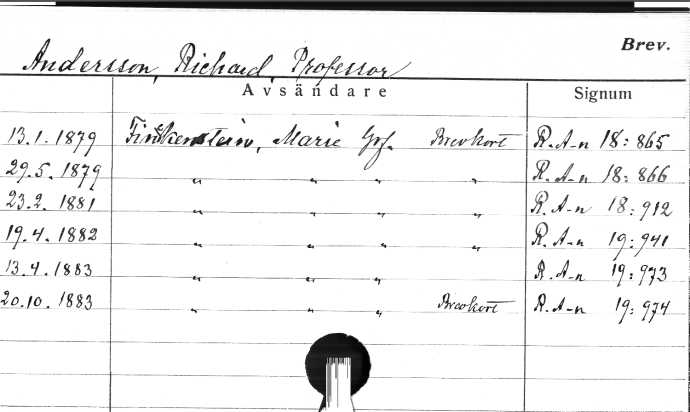 Brev.
Andersson, Richard, Professor
Avsändare Signum
13.1.1879 Finckenstein, Marie Grf. Brevkort R.A-n 18:865
29.5.1879 " " " " R.A-n 18:866
23.2.1881 " " " " R.A-n 18:912
19.4.1882 " " " " R.A-n 19:941
13.4.1883 " " " R.A-n 19:973
20.10.1883 " " " Brevkort R.A-n 19:974